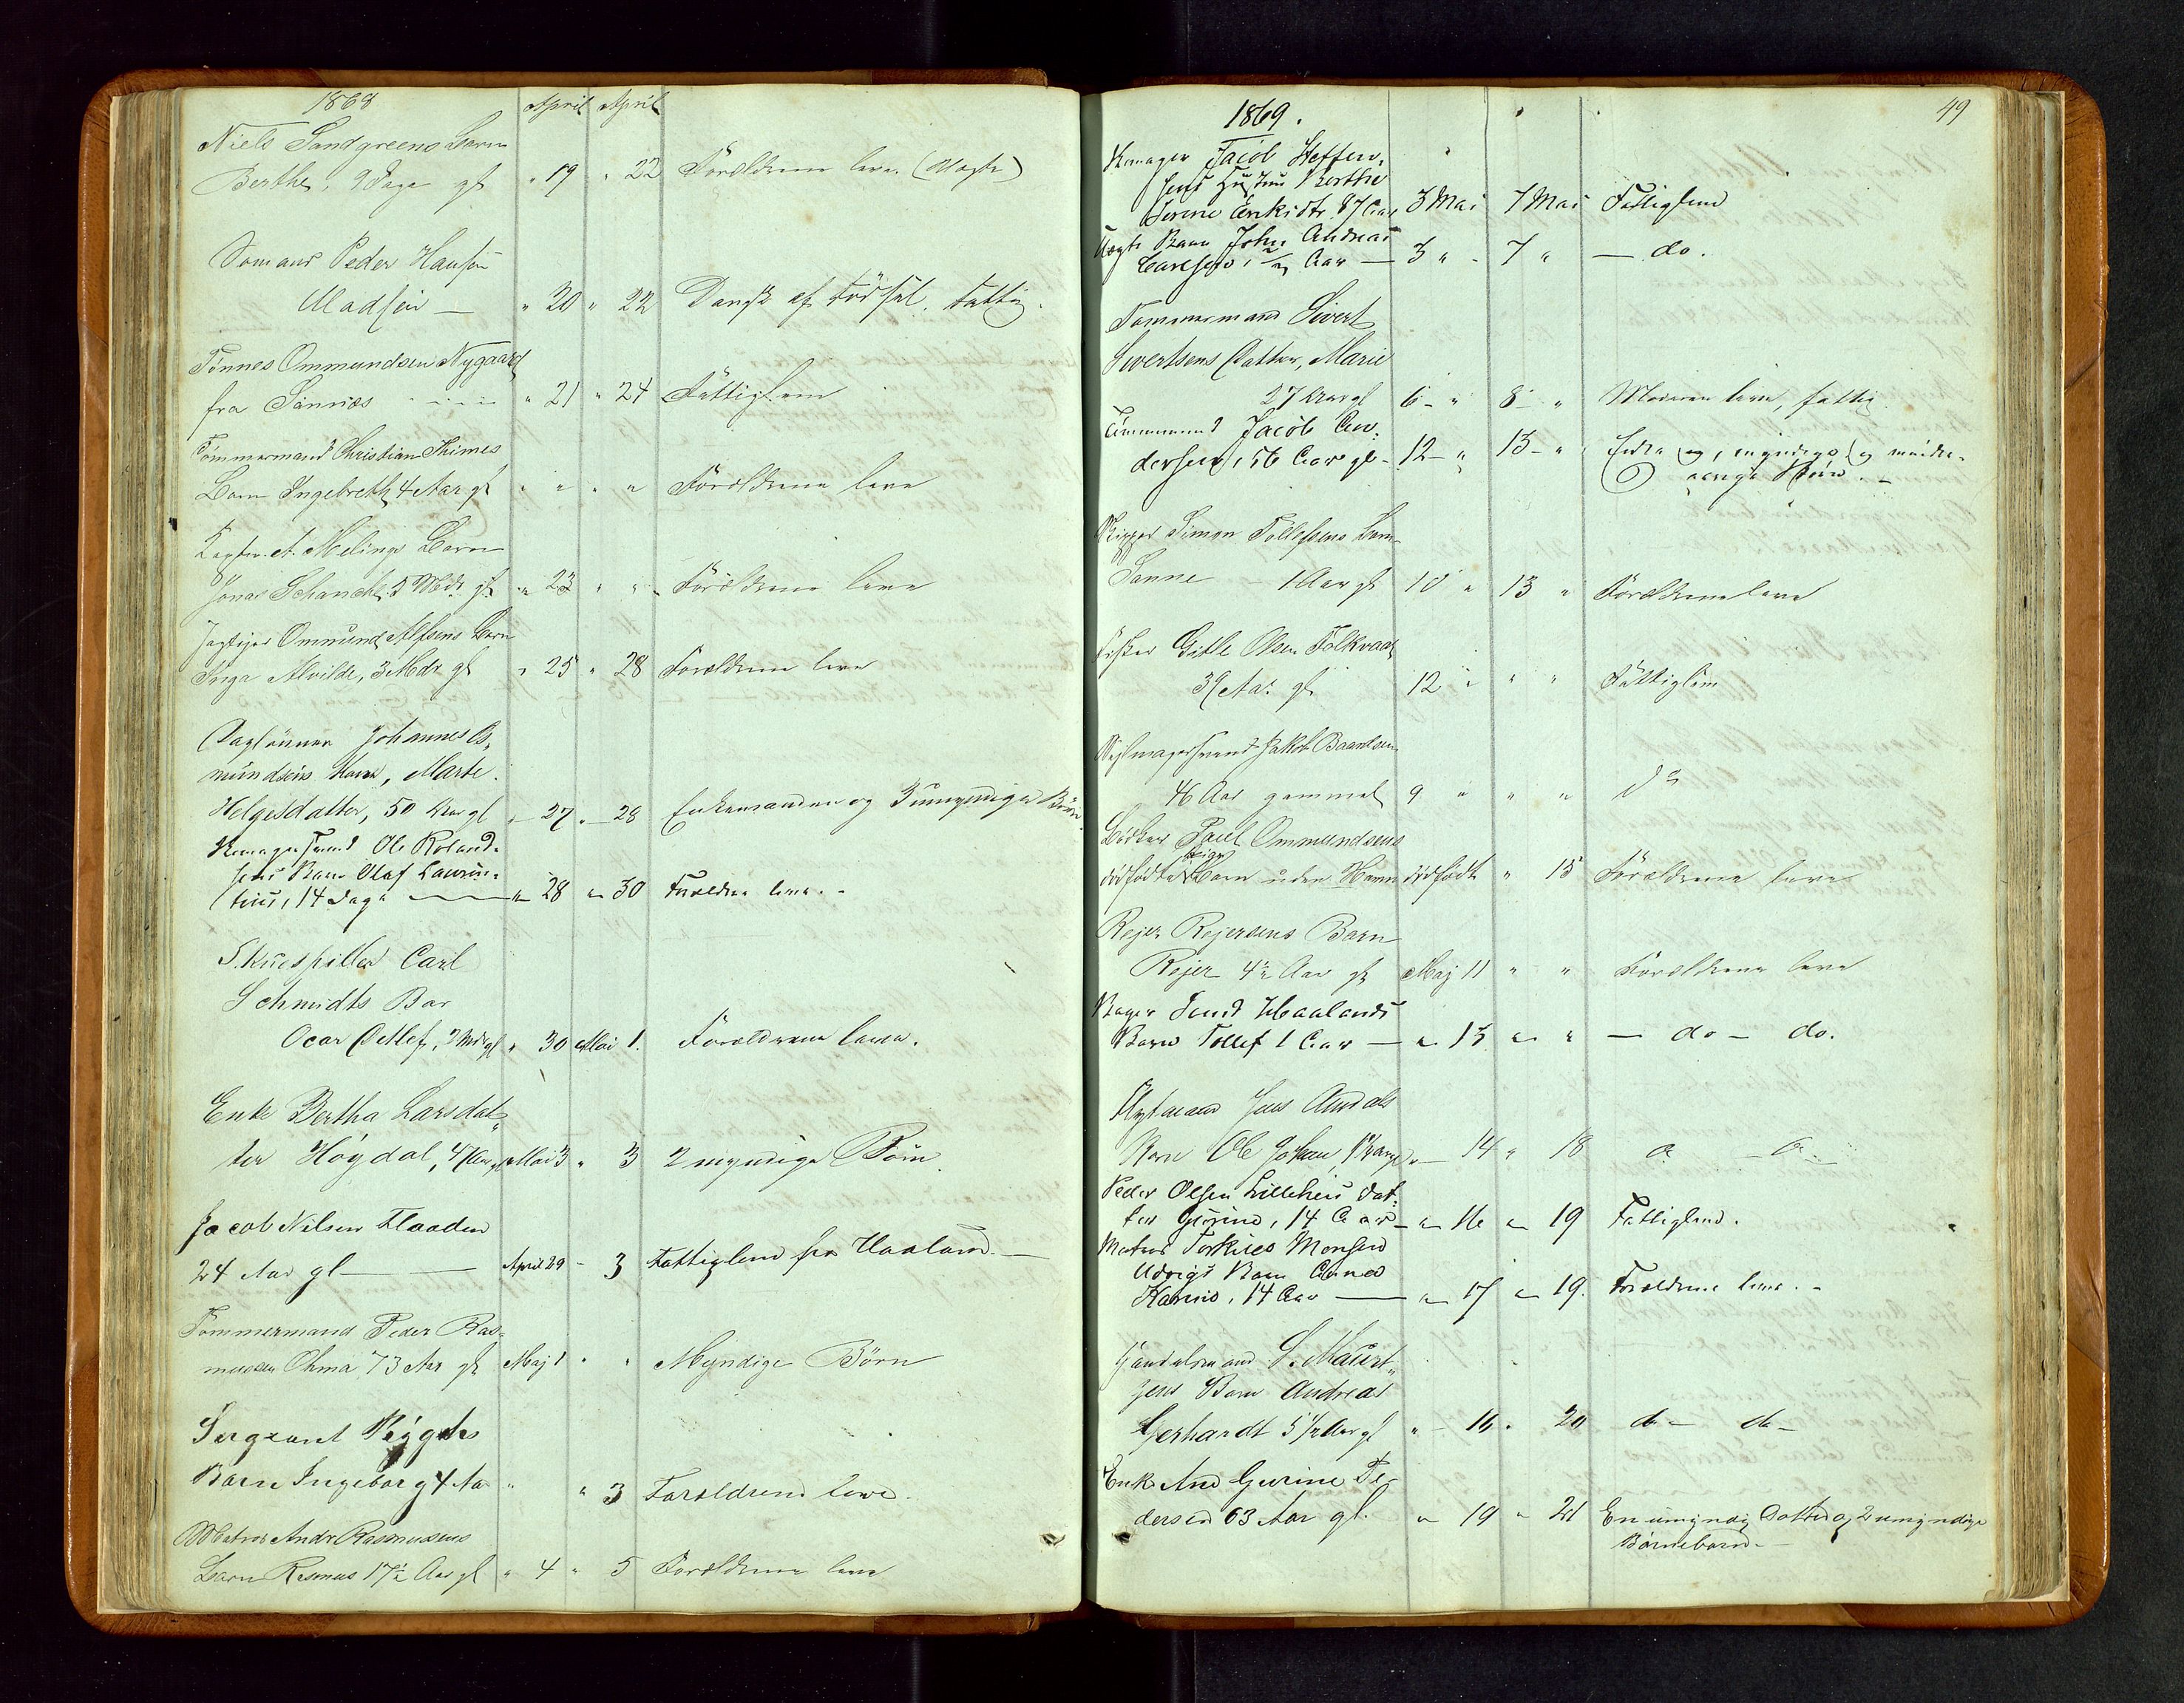 1868 April April
Niels Sandgreens Barn
Berthe, 9 Dage gl " 19 " 22 Forældrene leve. (Uægte)
Sømand Peder Hansen
Madsen — " 20 " 22 Dansk af Fødsel. fattig.
Tønnes Ommundsen Nygaard
fra Sannæs " 21 " 24 Fattiglem
Tømmermand Christian Thimes
Barn Ingebreth 4 Aar gl " " " " Forældrene leve
A. Melings Barn
Jonas Schanche 5 Mdr gl " 23 " " Forældrene leve
Ommund Alfsens Barn
Inga Alvilde, 3 Mdr gl " 25 " 28 Forældrene leve
Daglønner Johannes Os-
mundsens Kone, Marte
Helgesdatter, 50 Aar gl " 27 " 28 Enkemanden og 3 umyndige Børn
Skomagersvend Ole Roland-
sens Barn Olaf Laurin-
tius, 14 Dage — " 28 " 30 Forældrene leve. -
Skuespiller Carl
Schmidts Bar
Ocar Detlef, 2 Mdr gl " 30 Mai 1. Forældrene leve.
Enke Bertha Larsdat-
ter Høydal, 47 Aar gl Mai 3 " 3 2 myndige Børn
Jacob Nilsen Flaaden
24 Aar gl — April 29 - 3 Fattiglem fra Haaland. —
Tømmermand Peder Ras-
mussen Ohma 73 Aar gl Maj 1 " " Myndige Børn
Sergeant
Barn Ingeborg 4 Aa " " 3 Forældrene leve.
Matros Andr Rasmussens
Barn Rasmus 17½ Aar gl " 4 " 5 Forældrene leve
49
1869.
Skomager Jacob Steffen-
sens Hustru Berthe
Serine Eriksdtr. 87 Aar 3 Mai 7 Mai Fattiglem
Uægte Barn John Andreas
Carlsen, Aar — 3 " - 7 " — do.
Tømmermand Sivert
Sivertsens Datter, Marie
27 Aar gl 6 - " 8 - " Moderen leve, fattig
Tømmermand Jacob An-
dersen, 56 Aar gl - 12 - " 13 - " Enke og myndige og mindre-
aarige Børn. -
Skipper Simon Tollefsens Barn
Sanne — 1 Aar gl 10 " 13 " Forældrene leve
Fisker Gitle Olsen Folkvord
39 Aar gl 12 " " " Fattiglem
Seilmagersvend Jakob Baardsen
46 Aar gammel 9 " " " do
Bødker Paul Ommundsens
dødfødte Pige Barn uden Navn dødfødt " 15 Forældrene leve
Rejer Rejersens Barn
Rejer 4½ Aar gl Maj 11 " " Forældrene leve
Bager Haalands
Barn Tollef 1 Aar — " 13 " " — do — do.
Jens
Barn Ole Johan, " 14 " 18
Peder Olsen Lilleheis Dat-
ter Gurine, 14 Aar — " 16 " 19 Fattiglem.
Matros Torkild Monsen
Barn Anna
Karine, 14 Aar — " 17 " 19. Forældrene leve. -
Handelsmand S. Maurit-
zens Barn Andreas
Gerhardt 5½ Aar gl " - 16 " 20 do - do -
Enke Ane Gurine Pe-
dersen 63 Aar gl. " 19 " 21 En umyndig Datter og 2 umyndige
Børnebørn. -